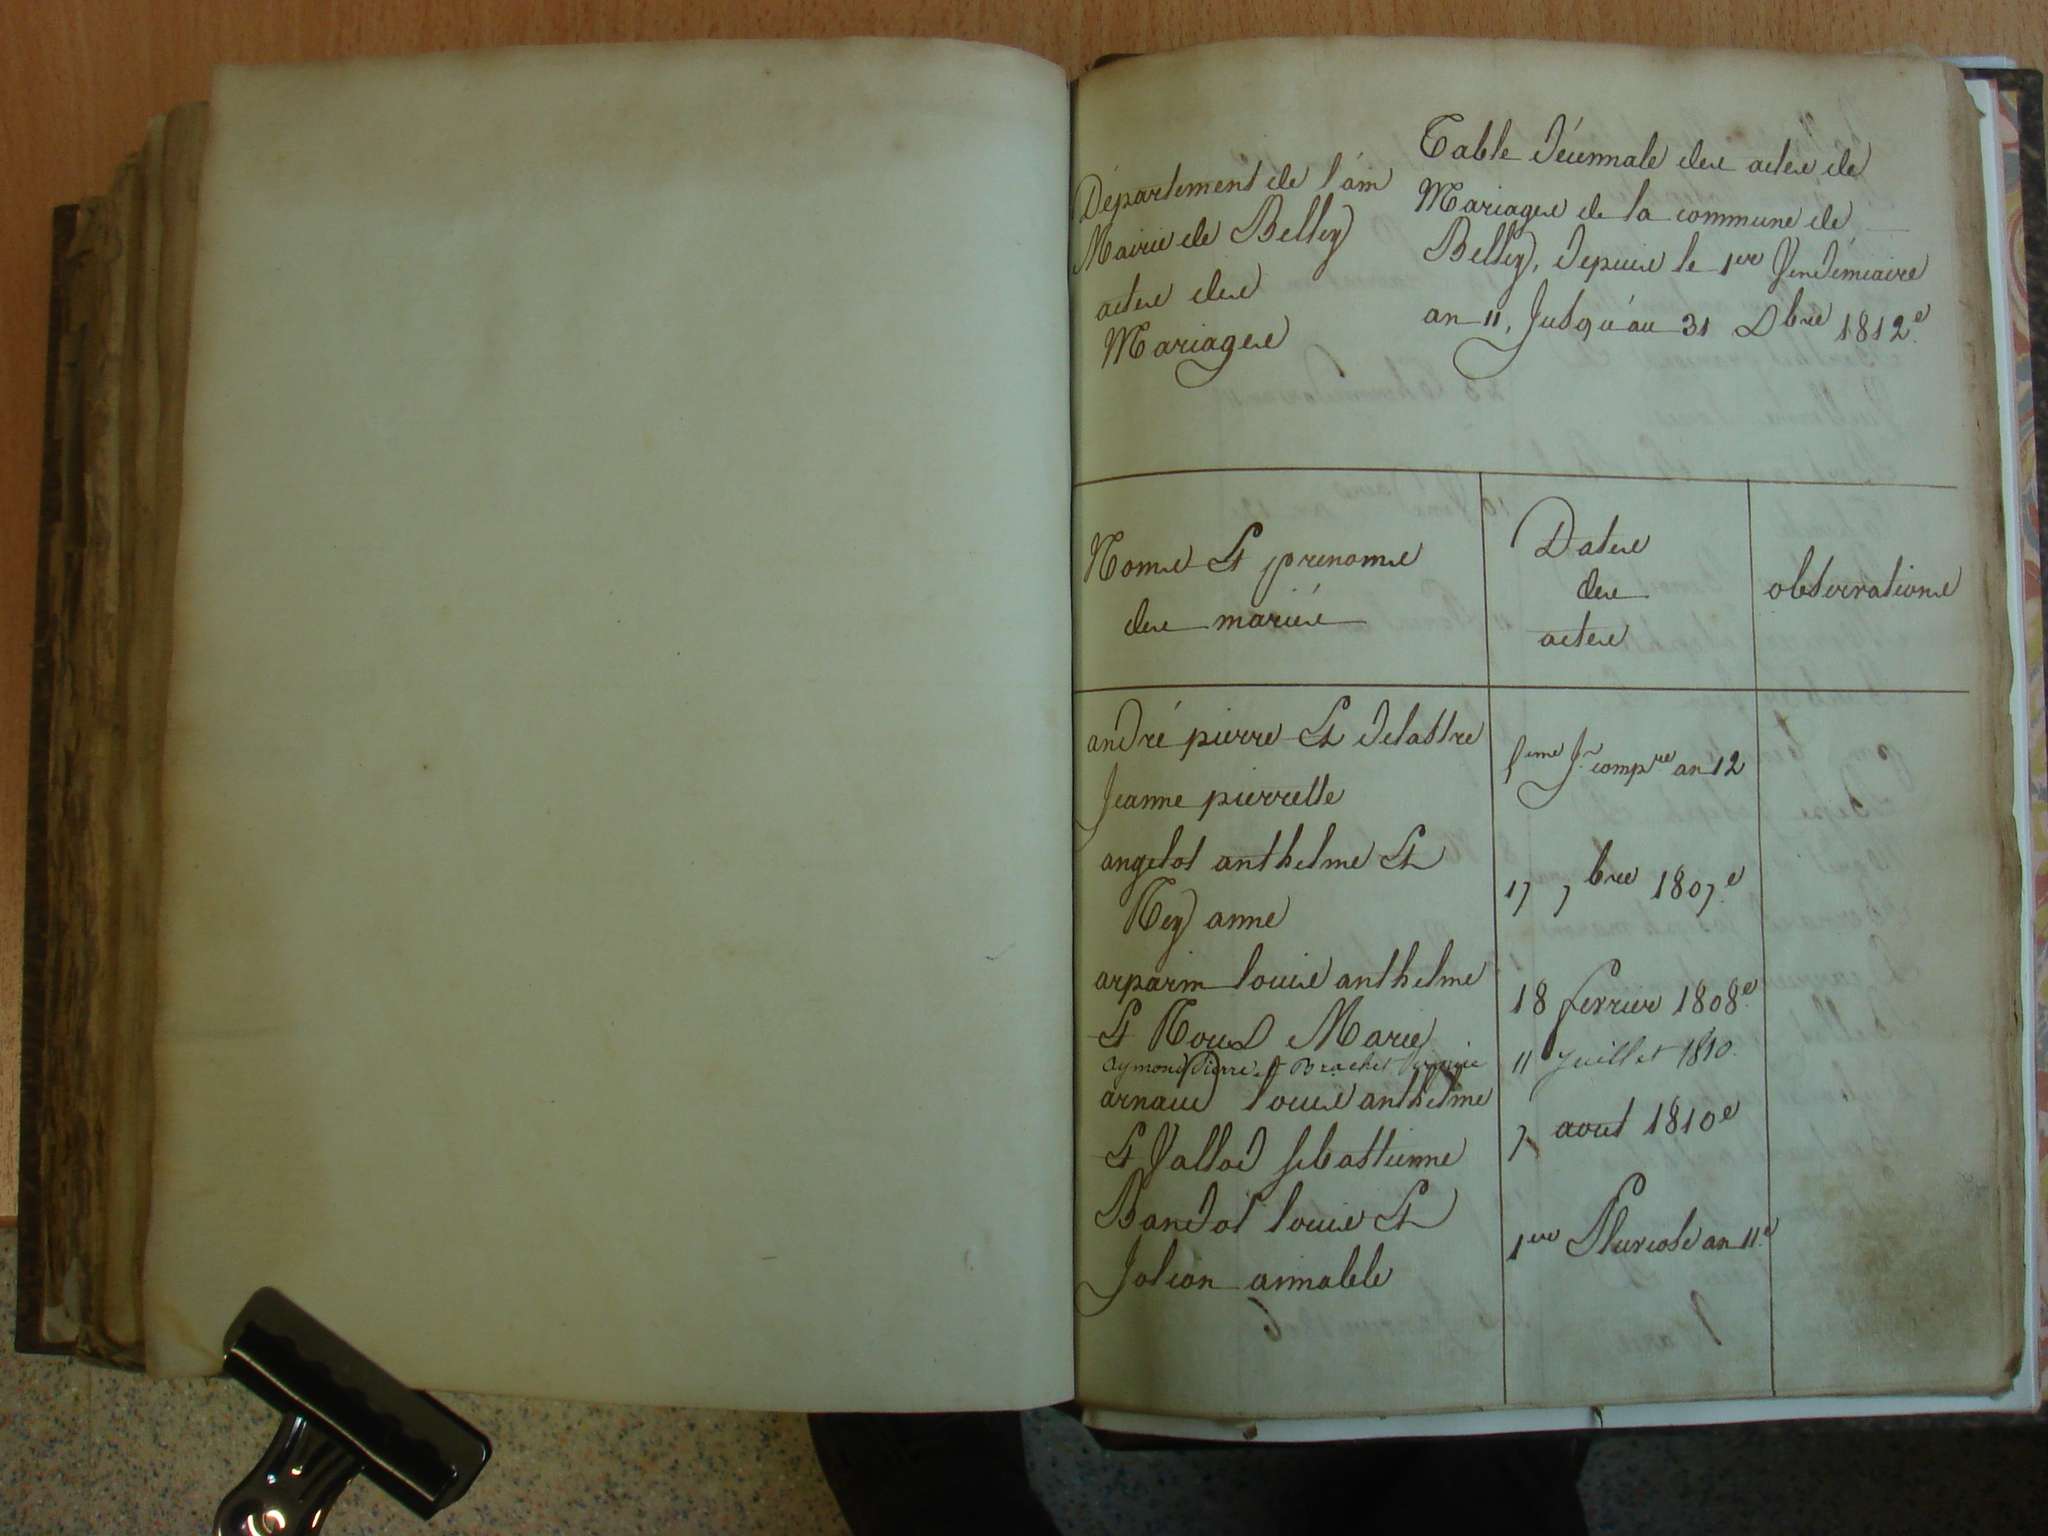 Département de l'ain
Mairie de Belley
actes des
Mariages
Table décennale des actes de
Mariages de la commune de
Belley, depuis le 1er Vendémiaire
an 11, Jusqu'au 31 Dbre 1812.
Noms Et prenoms
des mariés
Dates
des
actes
observations
andré pierre Et delattre
Jeanne pierrette
5eme Jr compre an 12
angelot anthelme Et
Rey anne
17 7bre 1807.
arparin louis anthelme
Et Roux Marie
18 fevrier 1808.
aymond Pierre et Brachet
11 juillet 1810.
arnaud louis anthelme
Et Vallod sebastienne
7 aout 1810
Bandot louis Et
Jolion annable
1er Pluviose an 11.